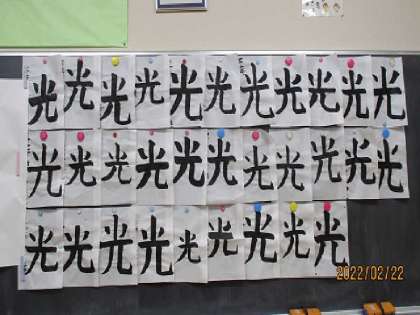 光光光光光光光光光光光
光光光光光光光光光光光
光光光光光光光光光
2022/02/22